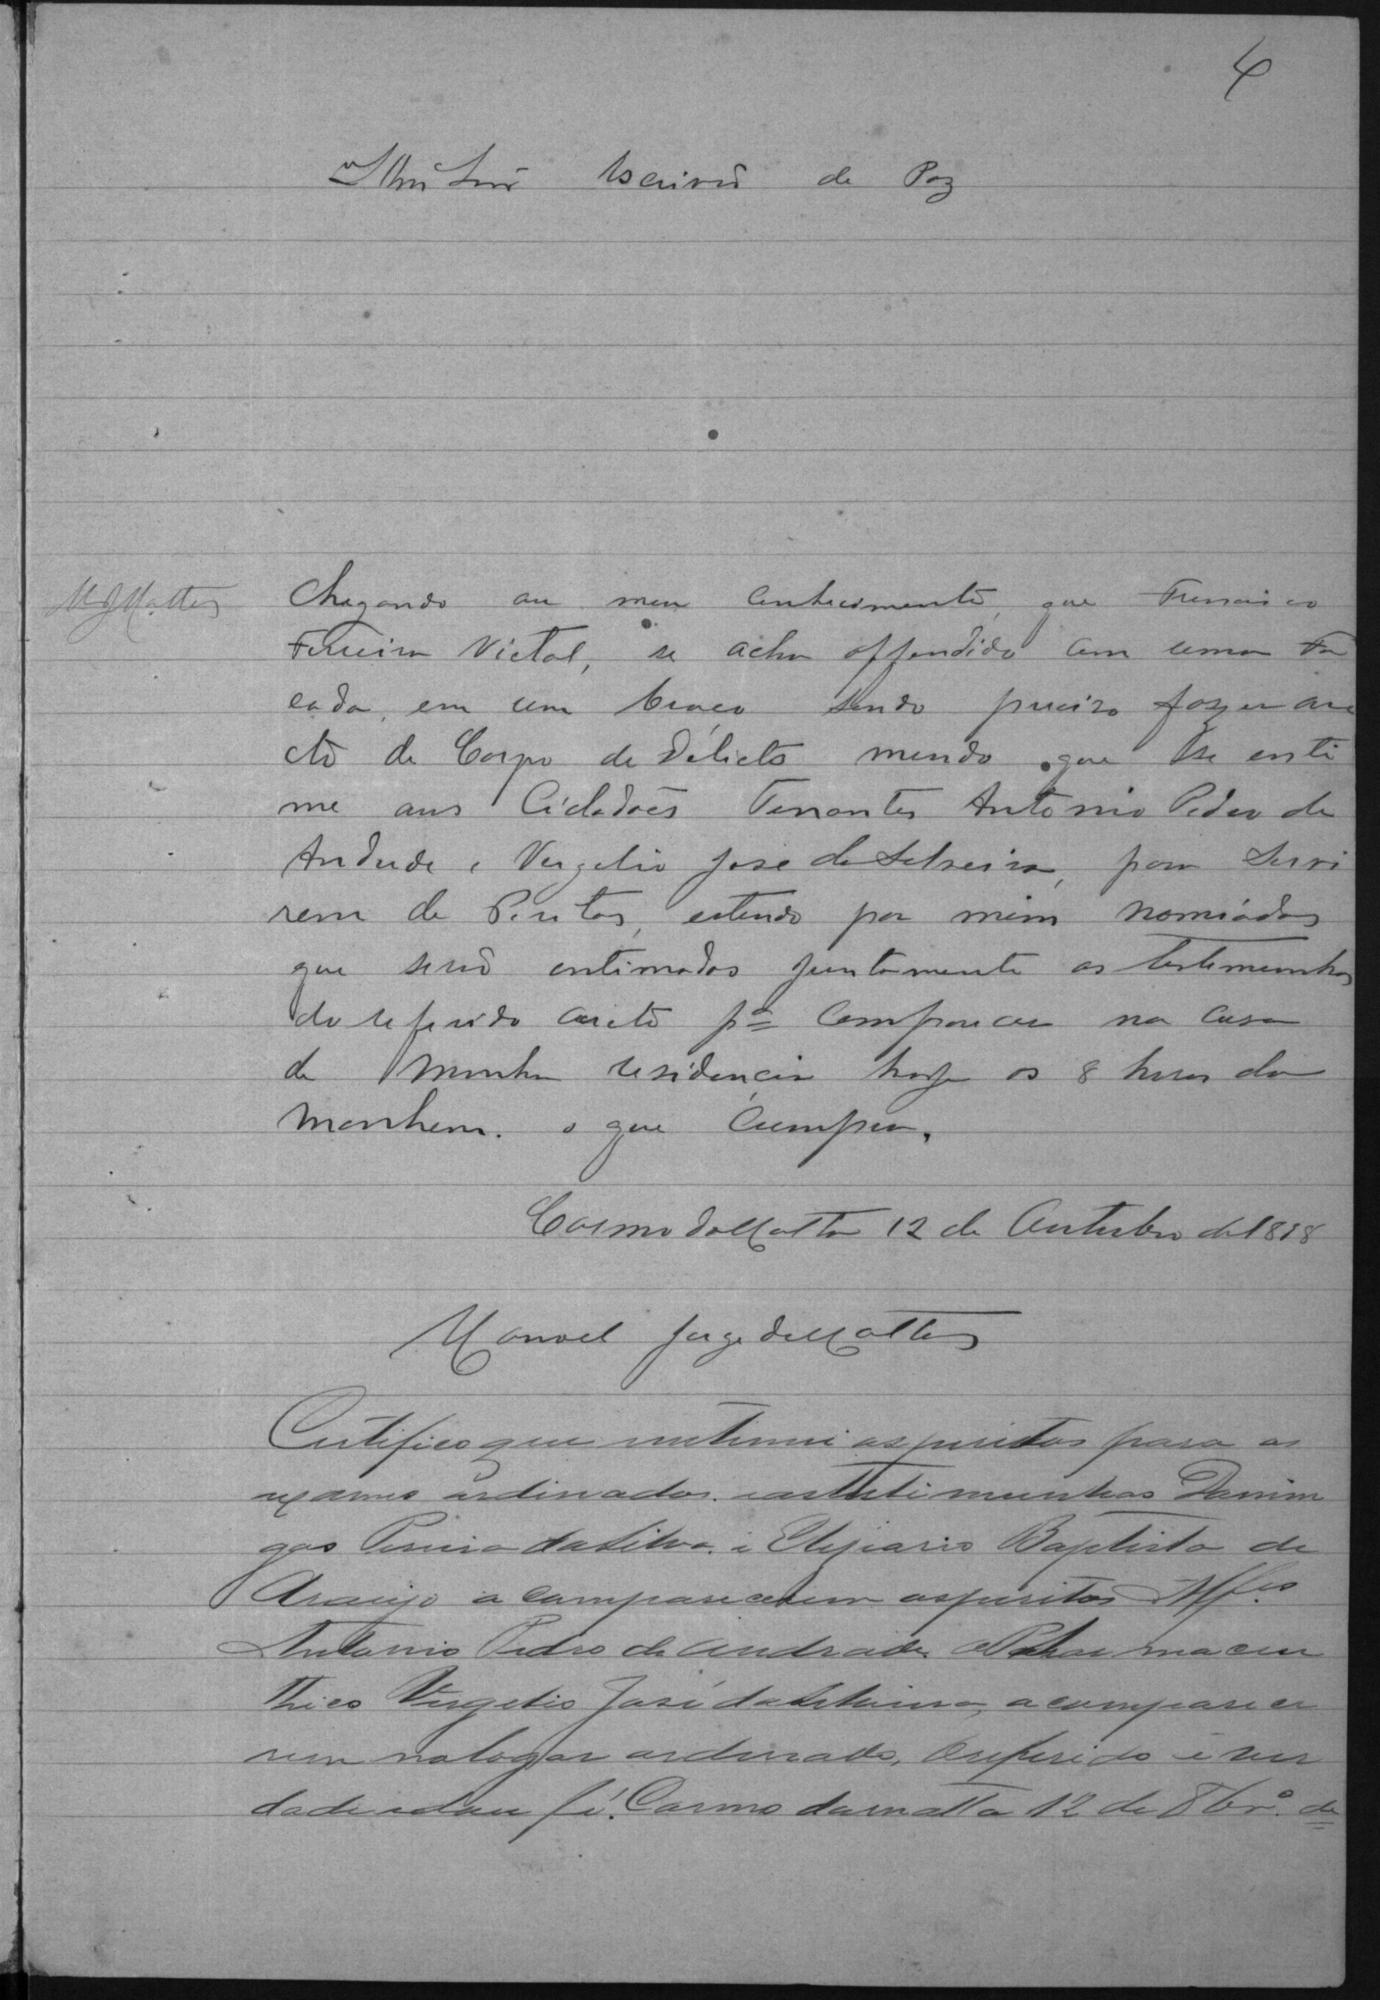 4
Illmo Snr Escrivão de Paz
MJMattos
Chegando au meu conhecimento, que Francisco
Ferreira Victal, se acha offendido com uma Fa
cada, em um braço sendo preciso fazer au
cto de Corpo de Delicto mando que se enti
me aus Cidadoes Tenentes Antonio Pedro de
Andrade e Vergelio José da Silveira, para Servi
rem de Peritos, estendo por mim nomiados
que serão entimados juntamente as testemunhas
do referido aucto pª Comparecer na casa
de minha residencia hoje as 8 horas da
manhem. o que Cumpra.
Carmo da Matta 12 de Outubro de 1898
Manoel Jorge de Mattos
Certifico que intimei os peritos para os
exames ordinados. e as testimunhas Domin
gos Pereira da Silva. e Elejiario Baptista de
Araujo a comparecerem os peritos Alfes
Antonio Pedro de Andrade, e Pharmaceu
thico Vergelio José da Silveira, a comparece
rem no logar ordenado, O referido é ver
dade e dou fé. Carmo da matta 12 de 8brº. de